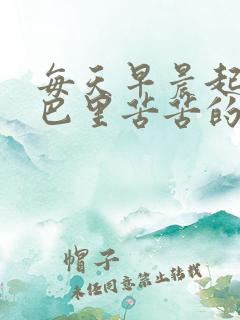 每天早晨起
巴里苦苦的
帽子
未经同意禁止转载